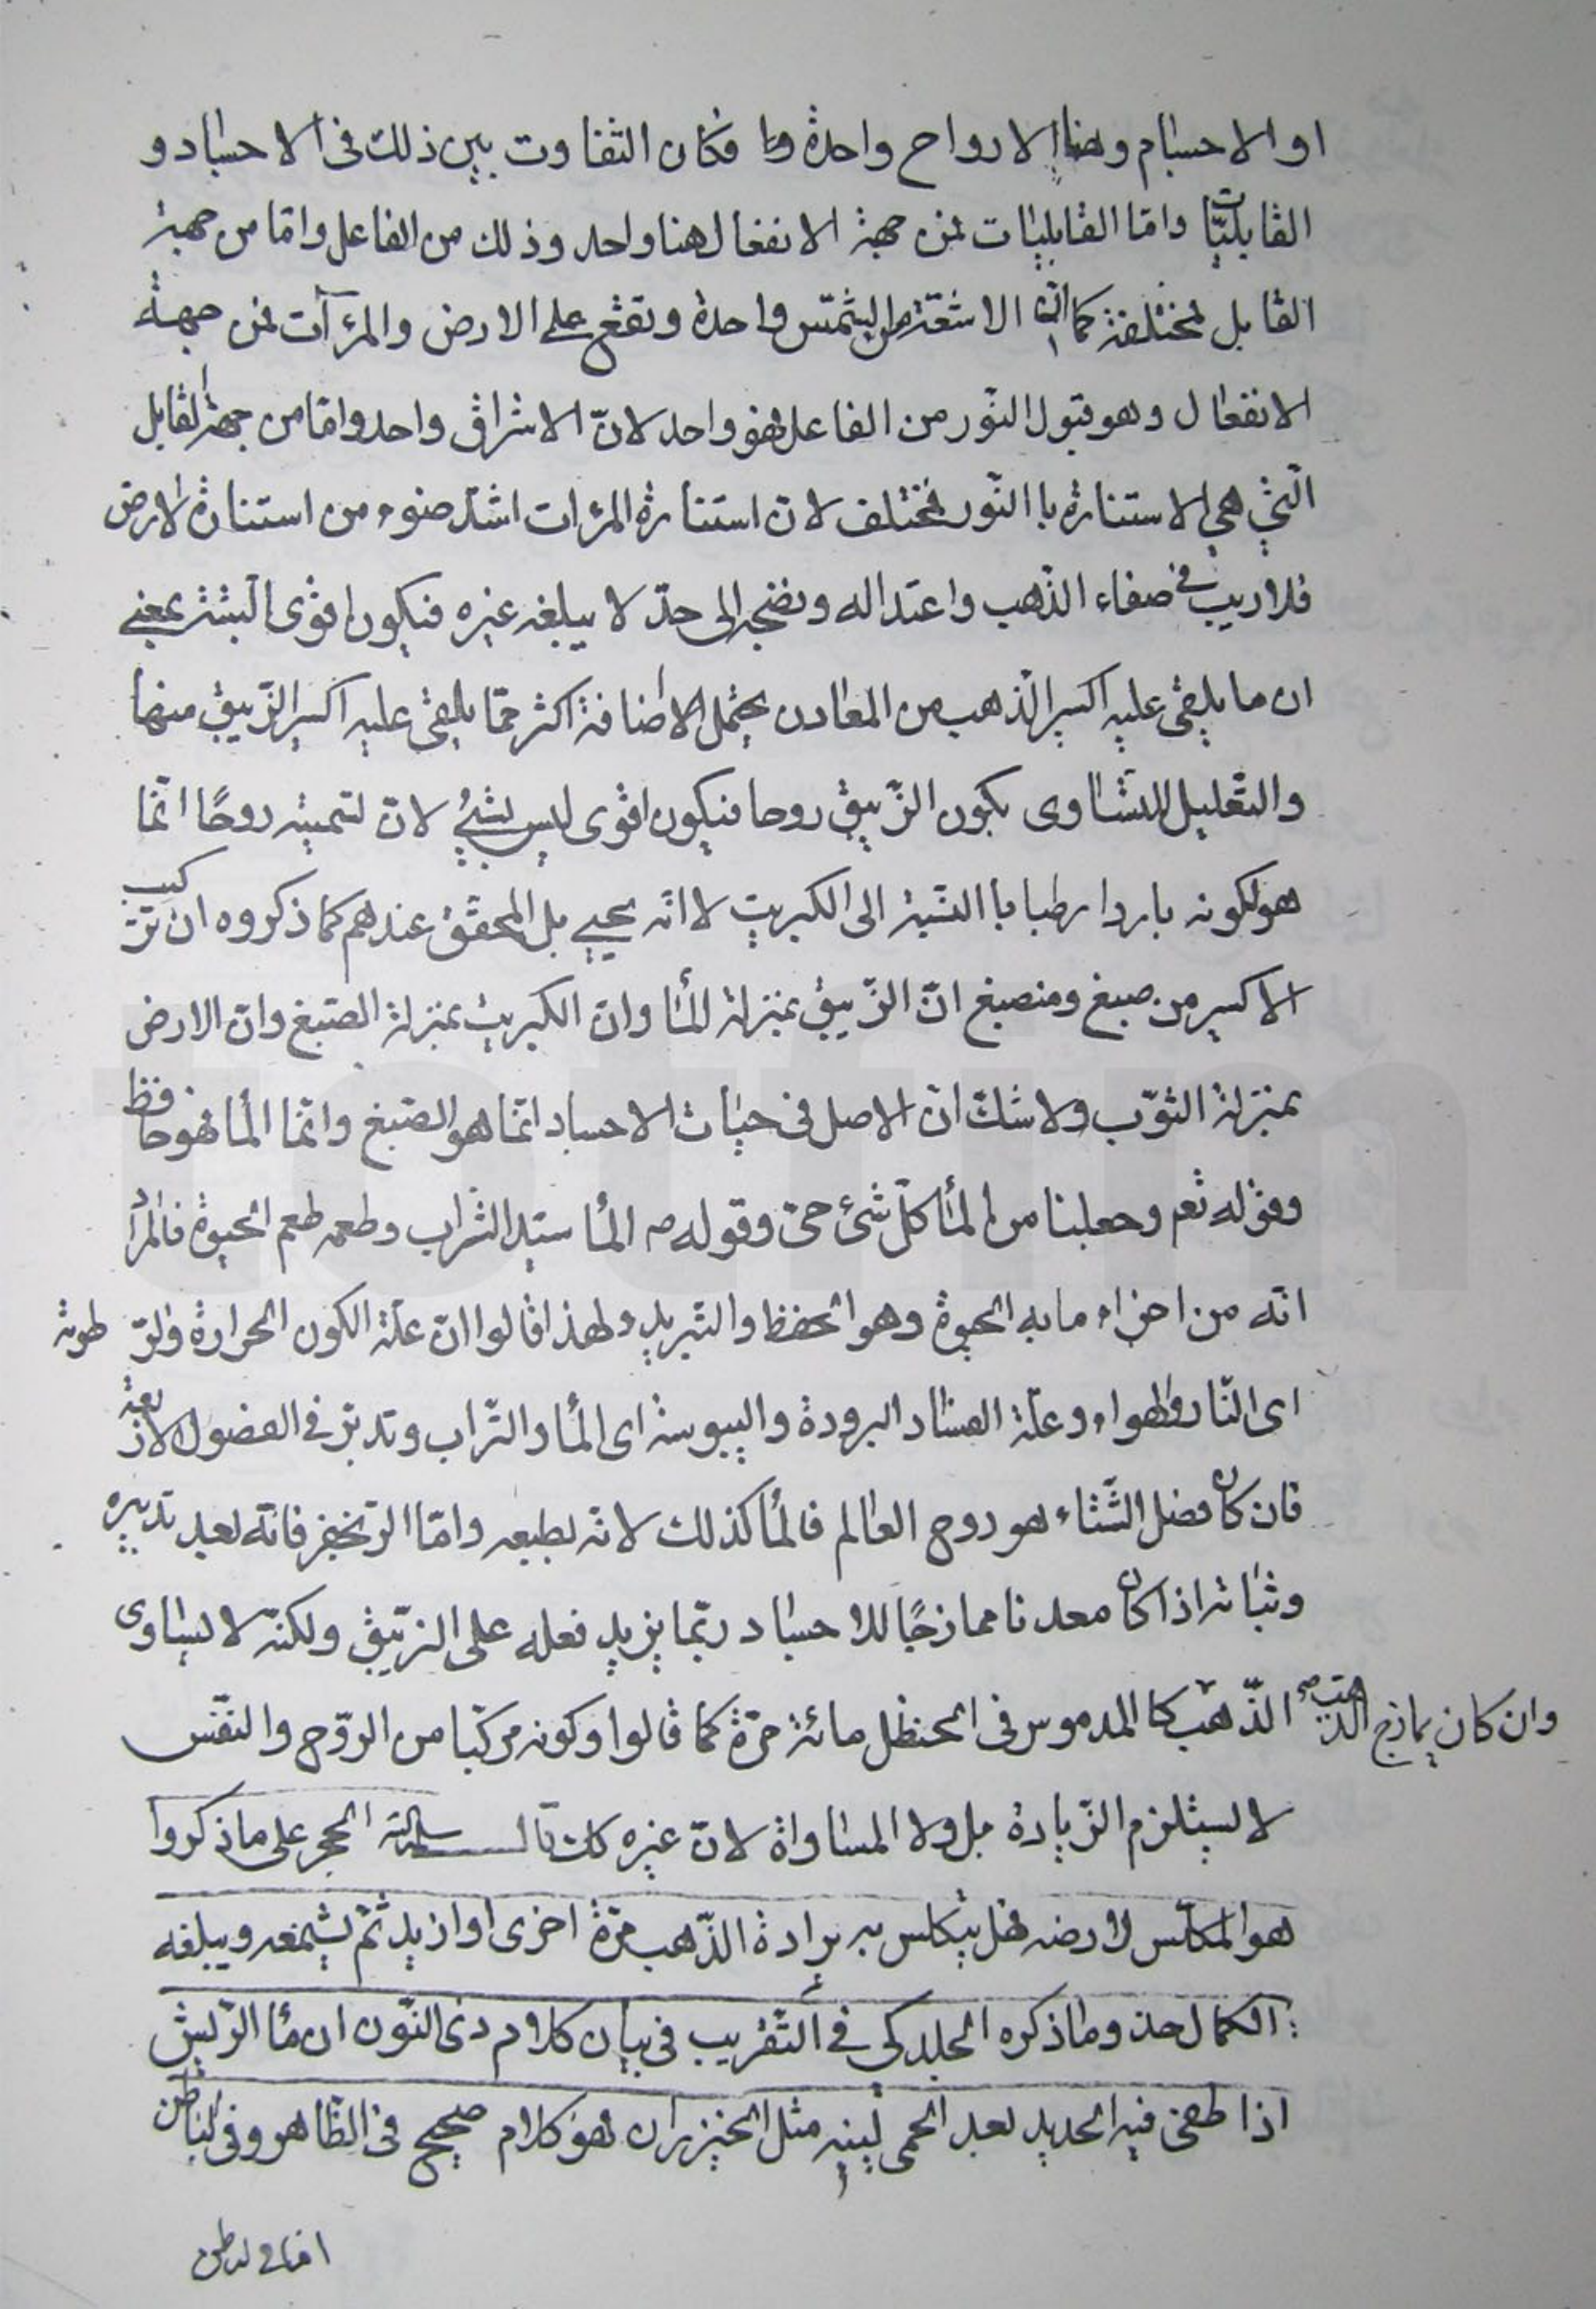 او الاجسام وهنا الارواح واحدة فكان التفاوت بين ذلك فى الاجساد و
القابليّات وامّا القابليات فمن جهة الانفعال هنا واحد وذلك من الفاعل وامّا من جهة
القابل مختلفة كما انّ الاشعّة من الشمس واحدة وتقع على الارض والمرآت فمن جهة
الانفعال وهو قبول النّور من الفاعل فهو واحد لانّ الاشراق واحد وامّا من جهة القابل
الّتي هي الاستنارة باالنّور فمختلف لانّ استنارة المرات اشدّ ضوء من استنارة الارض
فلا ريب في صفاء الذّهب واعتداله ونضجه الى حدّ لا يبلغه غيره فيكون اقوى البتّة بمعنى
ان ما يلقى عليه اكسير الذّهب من المعادن يحتمل الاضافة اكثر ممّا يلقى عليه اكسير الزّيبق منها
والتّعليل للتساوى بكون الزّيبق روحا فيكون اقوى ليس بشيئ لانّ تسميته روحًا انّما
هو لكونه باردا رطبا باالنسبة الى الكبريت لا انّه يحيي بل المحقّق عندهم كما ذكروه ان تركيب
الاكسير من صبغ ومنصبغ انّ الزّيبق بمنزلة المأ وانّ الكبريت بمنزلة الصّبغ وانّ الارض
بمنزلة الثّوب ولا شكّ انّ الاصل فى حيات الاجساد انّما هو الصّبغ وانّما المأ فهو حافظ
وقوله تعم وجعلنا من المأ كلّ شئ حىّ وقوله ص المأ سيّد الشّراب وطعمه طعم الحيوة فالمراد
انّه من اجزاء ما به الحيوة وهو الحفظ والتّبريد ولهذا قالوا انّ علّة الكون الحرارة والرّطوبة
اى النّار والهواء وعلّة الفساد البرودة واليبوسة اى المأ والتّراب وتدبّر فى الفصول الاربعة
فان كان فصل الشّتاء هو روح العالم فالمأ كذلك لانّه بطبعه وامّا الزنجفر فانّه بعد تدبيره
وثباته اذا كان معدنا ممازجًا للاجساد ربّما يزيد فعله على الزيّبق ولكنّه لا يساوى
وان كان يمازج الذّهب صح الذّهب كالمدموس فى الحنظل مائة مرّة كما قالوا وكونه مركّبا من الرّوح والنّفس
لا يستلزم الزّيادة بل ولا المساواة لانّ غيره كك قال سلمه الله الحجر على ما ذكروا
هو المكلّس لارضه فهل يتكلس به برادة الذّهب مرّة اخرى او ازيد ثمّ يشمّعه ويبلغه
الكمال حد وما ذكره الجلدكى في التّقريب فى بيان كلام ذى النّون ان مأ الرّيش
اذا طفى فيه الحديد بعد الحمى لينه مثل الخيزران فهو كلام صحيح فى الظّاهر وفى الباطن